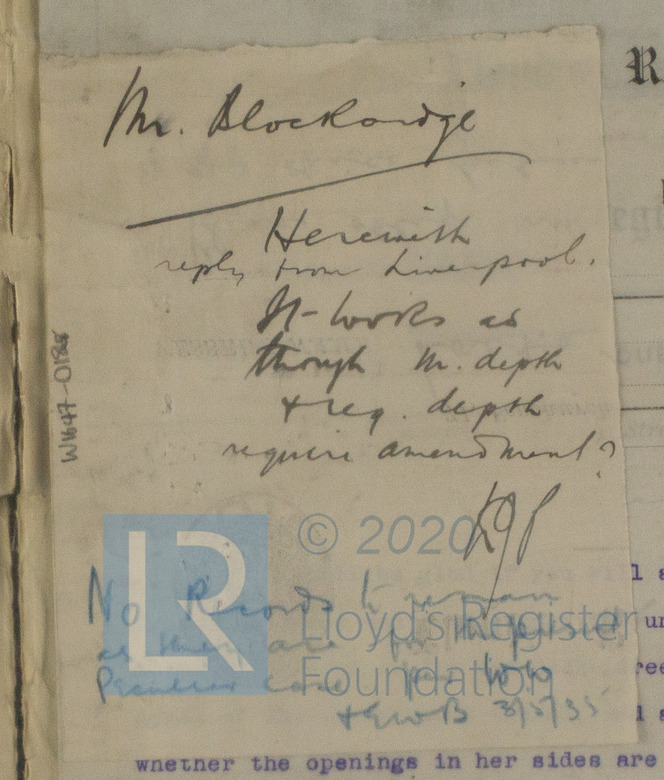 Mr. Blockridge
Herewith
reply from Liverpool.
It looks as
though M. depth
& reg. depth
require amendment?
W1647-0188
LR
© 2020
Lloyd's Register
Foundation
No Records to remain
as they are for the
Peculiar case
& EWB 3/5/35
whether the openings in her sides are